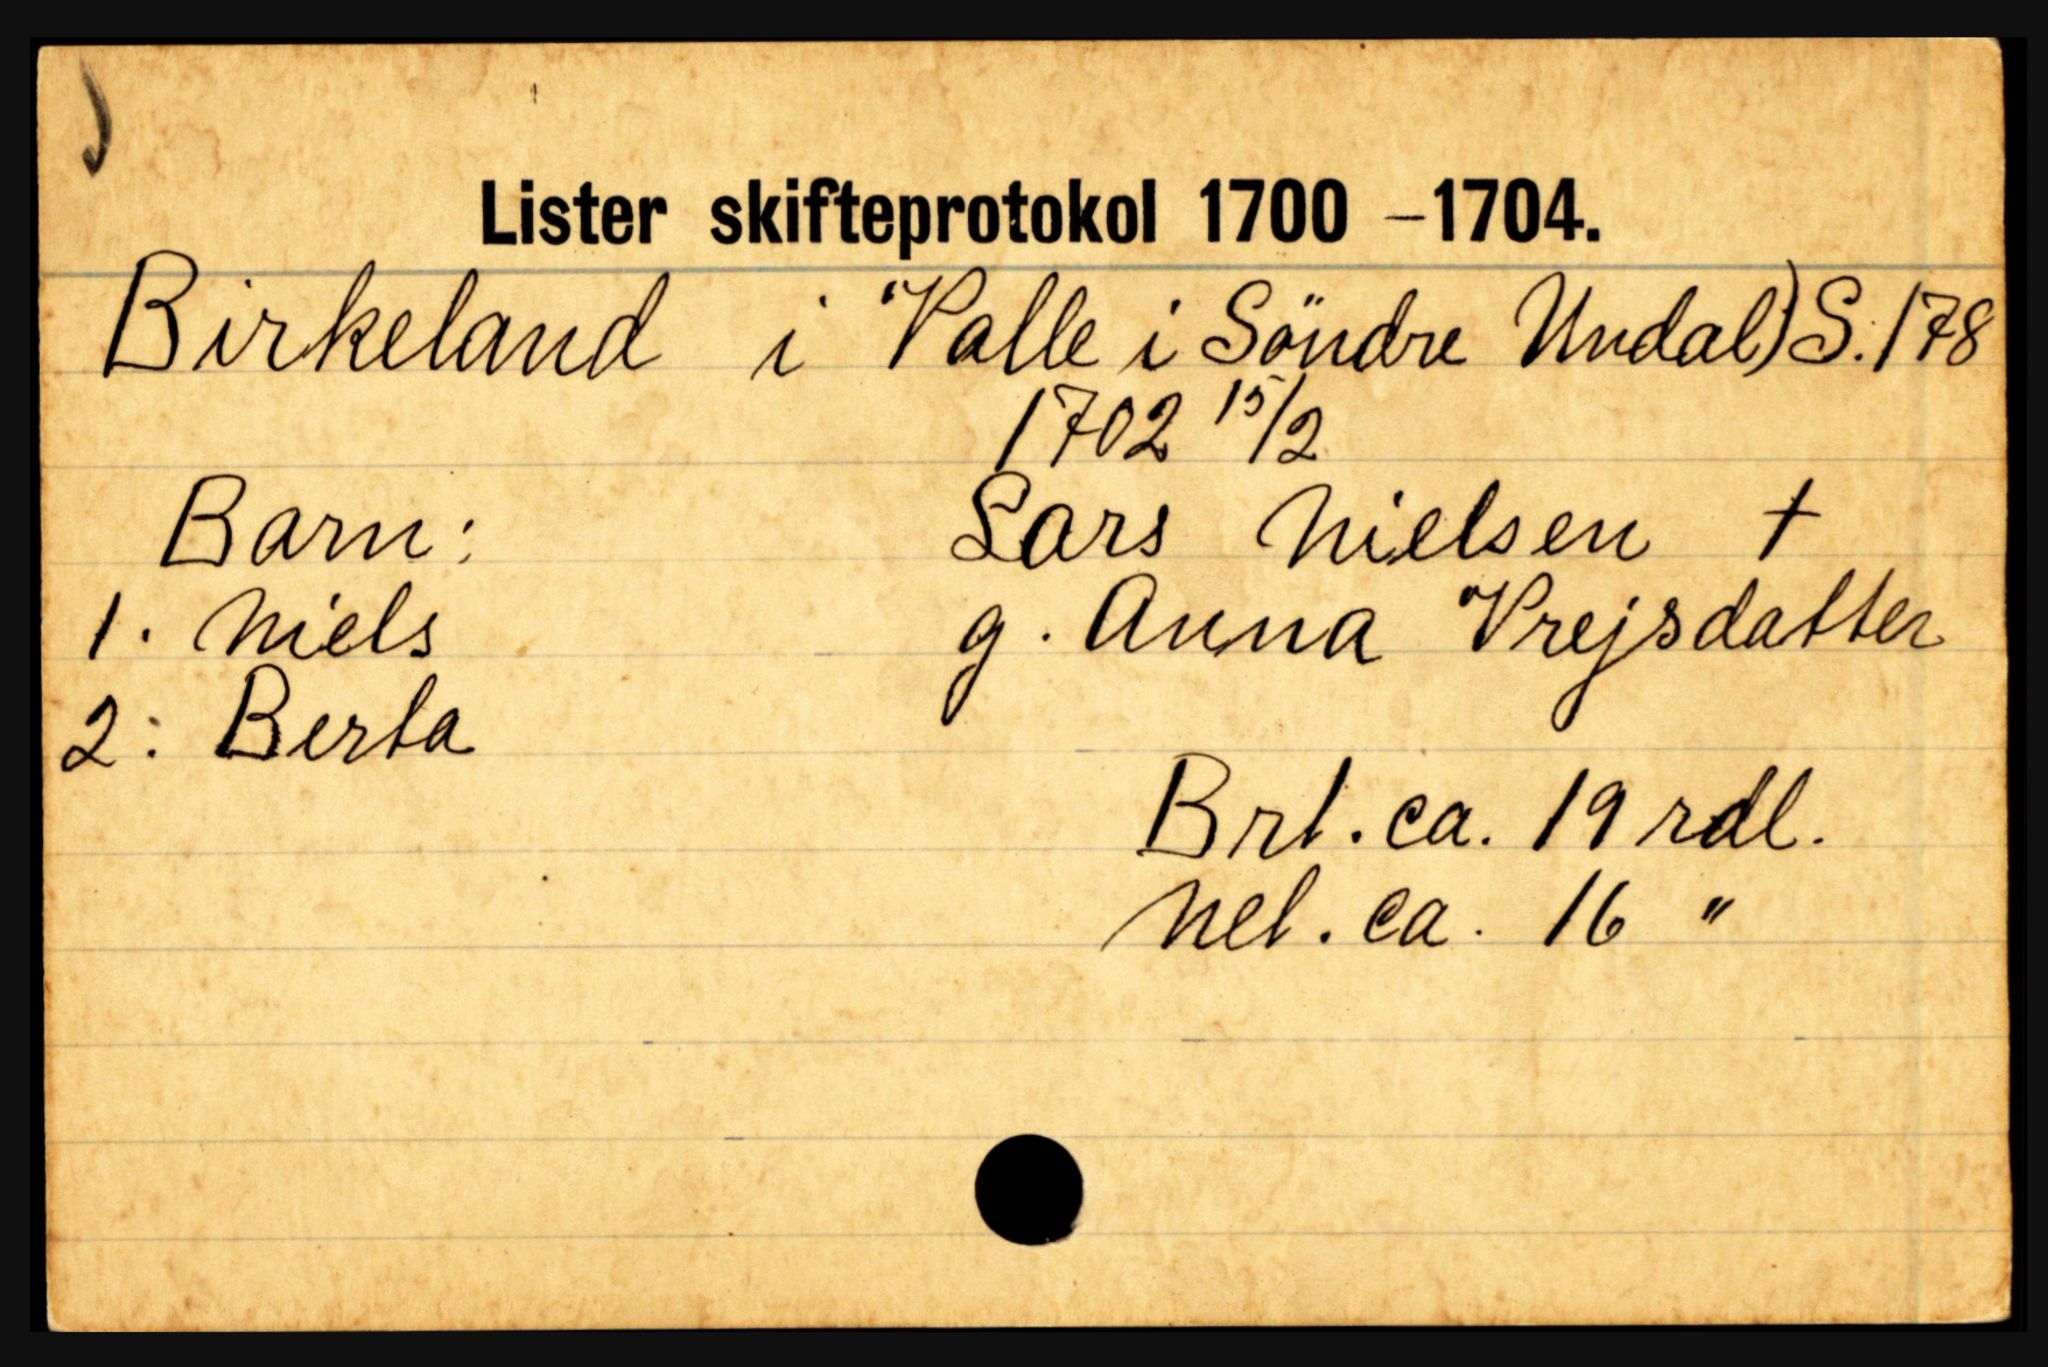 Lister skifteprotokol 1700 – 1704.
Birkeland i Valle i Söndre Undal) S. 178
1702 15/2
Barn: Lars Nielsen †
1. Niels g. Anna Vrejsdatter
2: Berta
Brt. ca. 19 rdl.
Net. ca. 16 "